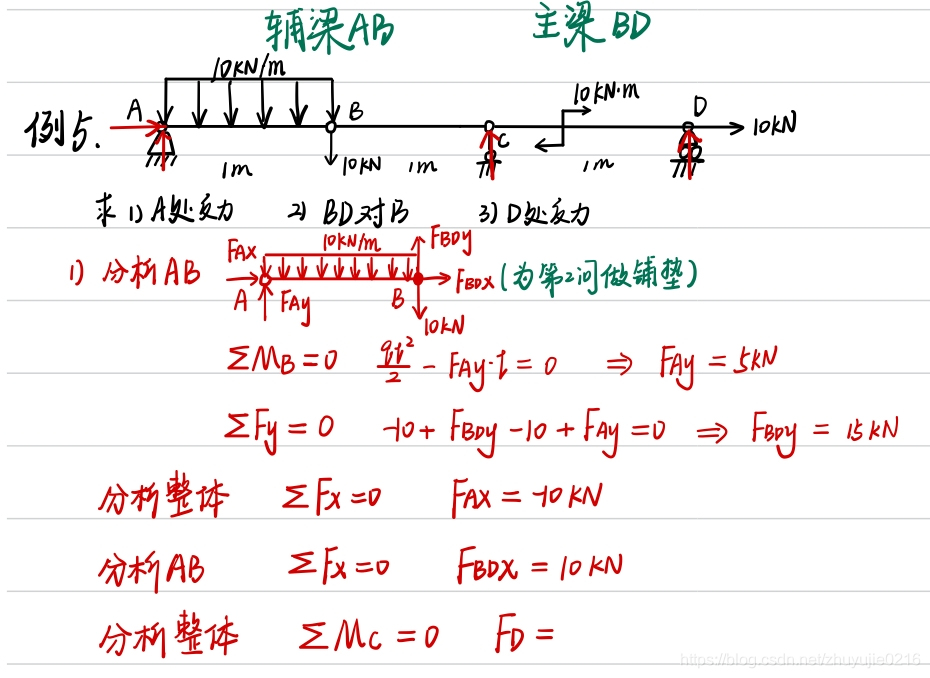 辅梁AB 主梁BD
10KN/m
A B C D
10KN·m
例5. 10KN
1m 10KN 1m 1m
求 1) A处反力 2) BD对B 3) D处反力
1) 分析AB FAX 10KN/m FBDY FBDX (为第2问做铺垫)
A FAy B 10KN
ΣMB=0 ql²/2 - FAy·l = 0 ⇒ FAy = 5KN
ΣFy=0 -10+ FBDy -10 + FAy =0 ⇒ FBDy = 15KN
分析整体 ΣFx=0 FAX = -10KN
分析AB ΣFx=0 FBDX = 10KN
分析整体 ΣMC=0 FD =
https://blog.csdn.net/zhuyujie0216